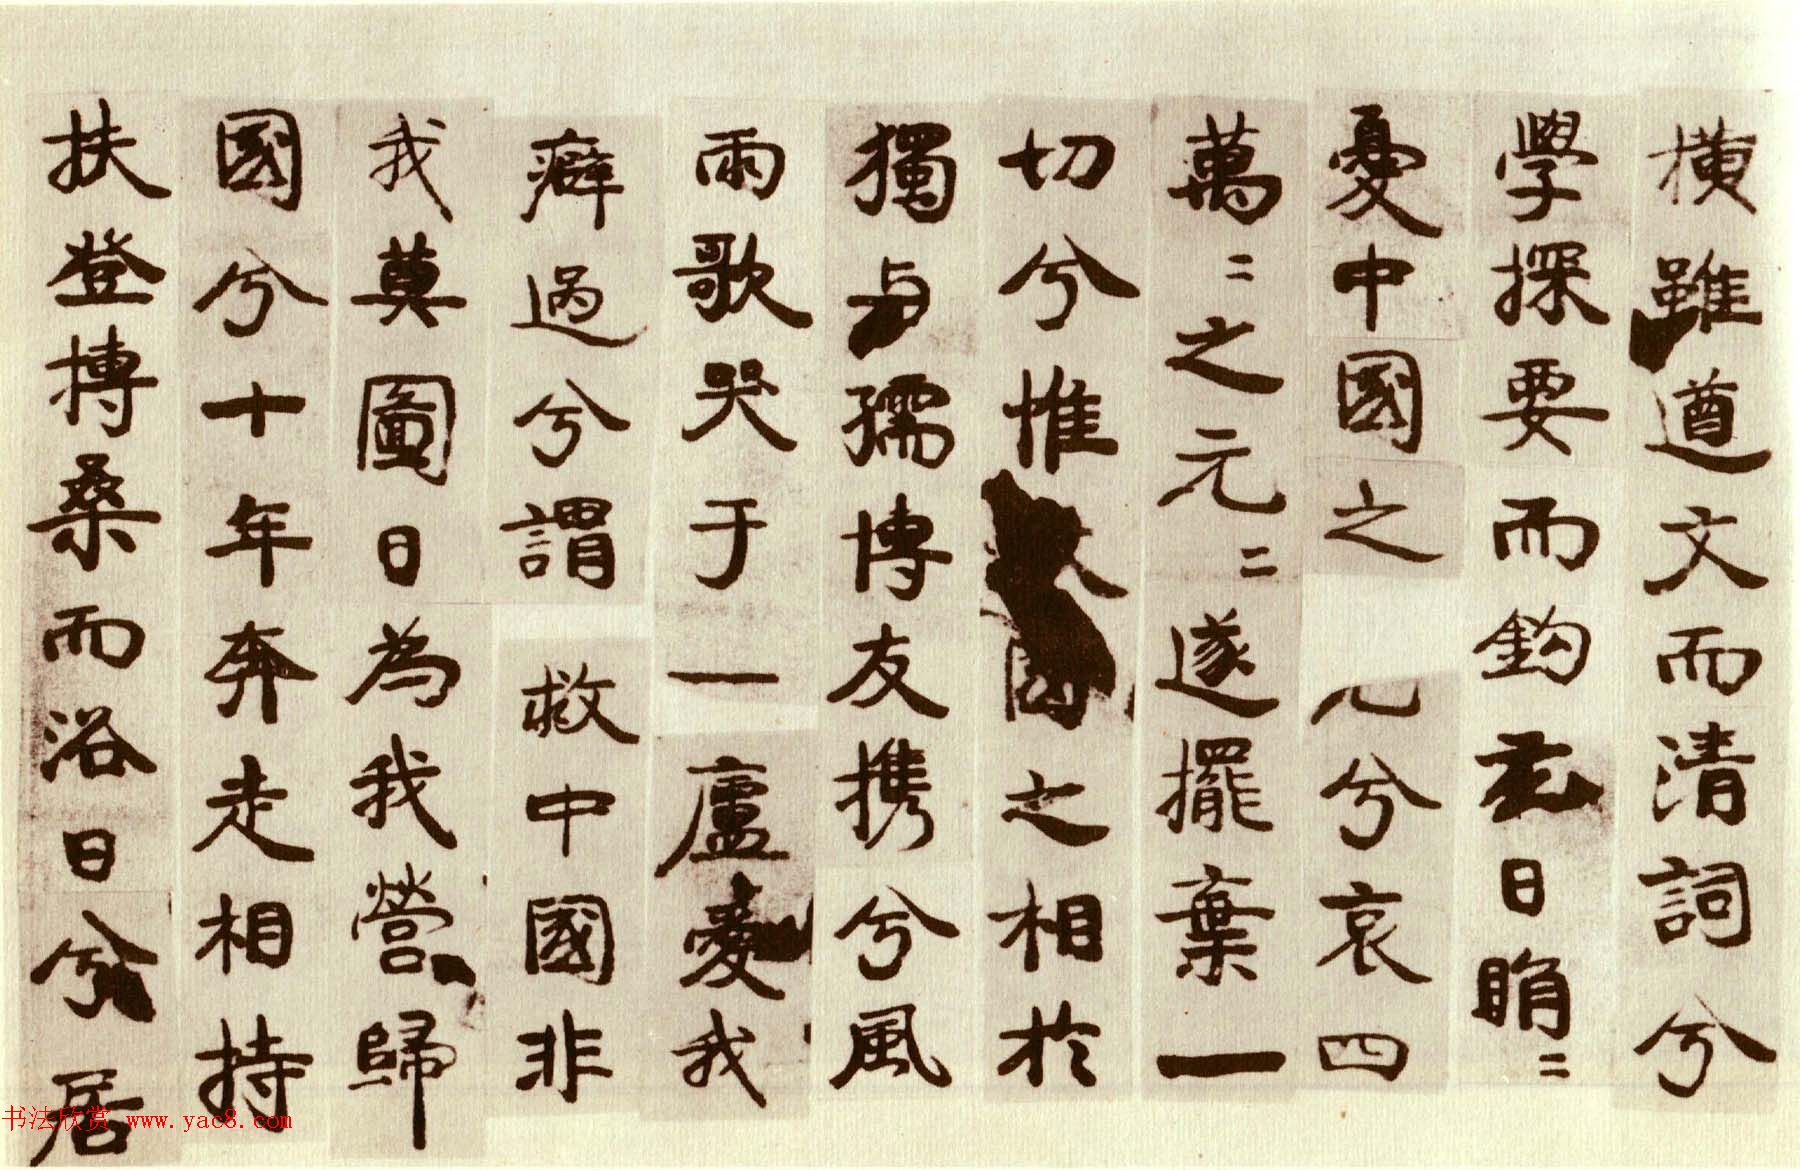 橫雖遒文而清詞兮
學探要而鈎玄日睊〻
憂中國之元兮哀四
萬〻之元〻遂擺棄一
切兮惟之相於
獨与孺博友携兮風
雨歌哭于一廬愛我
癖過兮謂救中國非
我莫圖日為我營歸
國兮十年奔走相持
扶登摶桑而浴日兮居
书法欣赏 www.yac8.com